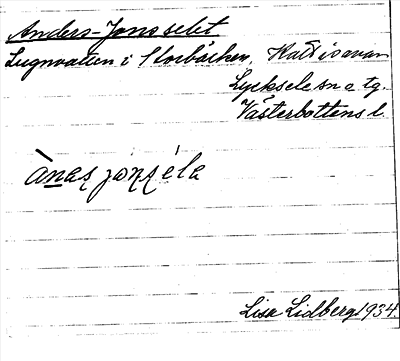 Anders-Jonsselet
Lugnvatten i Storbäcken,
Lycksele sn o tg.
Västerbottens l.
ànas jónséla
Lisa Lidberg 1934.